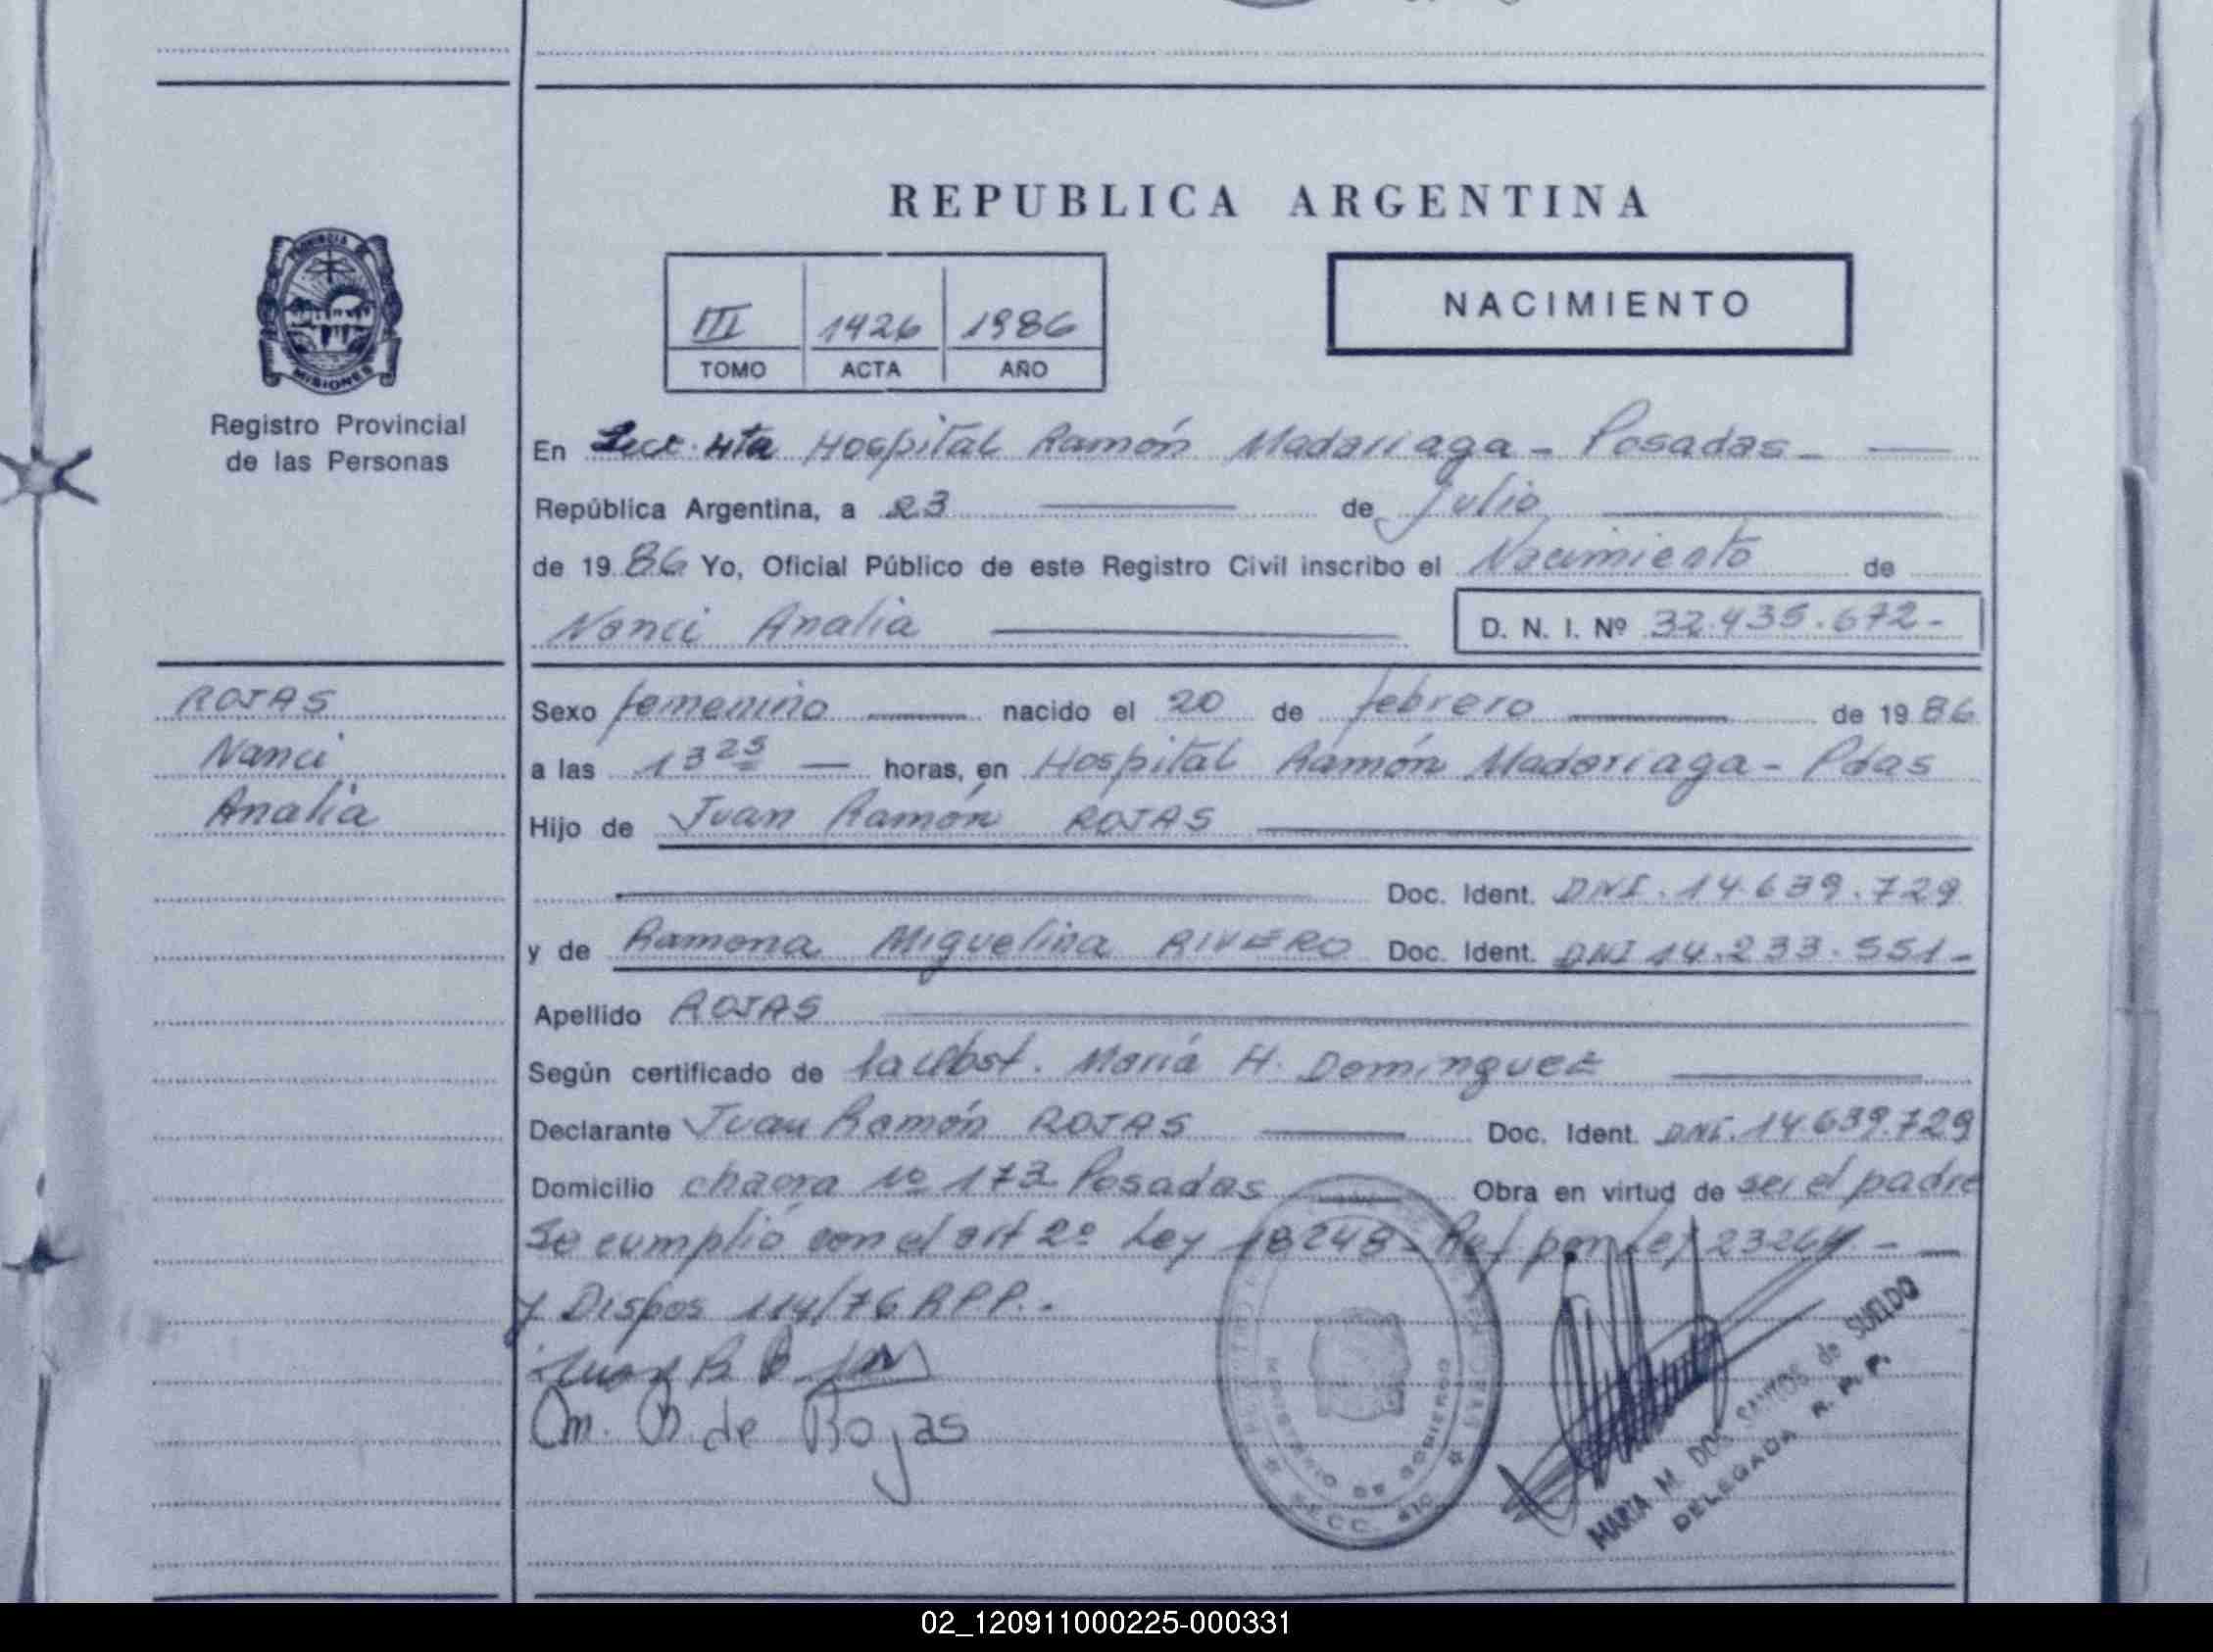 REPUBLICA ARGENTINA
NACIMIENTO
III 1426 1986
TOMO ACTA AÑO
PROVINCIA DE
MISIONES
Registro Provincial
de las Personas
En Secc. 4ta Hospital Ramón Madariaga - Posadas -
República Argentina, a 23 de julio
de 19 86 Yo, Oficial Público de este Registro Civil inscribo el Nacimiento de
Nanci Analia D. N. I. Nº 32.435.672-
ROJAS
Nanci
Analia
Sexo femenino nacido el 20 de febrero de 19 86
a las 13 25 horas, en Hospital Ramón Madariaga - Pdas
Hijo de Juan Ramón ROJAS
Doc. Ident. DNI. 14.639.729
y de Ramona Miguelina RIVERO Doc. Ident. DNI 14.233.551-
Apellido ROJAS
Según certificado de la Obst. María H. Dominguez
Declarante Juan Ramón ROJAS Doc. Ident. DNI. 14.639.729
Domicilio chacra nº 173 Posadas Obra en virtud de ser el padre
Se cumplió con el art 2º Ley 18248 - Ref por Ley 23264 -
y Dispos 114/76 R.P.P..-
Juan R.
m. R. de Rojas
MINISTERIO DE GOBIERNO
SECC.
MARTA M. DOS SANTOS de SUELDO
DELEGADA R. P. P.
02_120911000225-000331